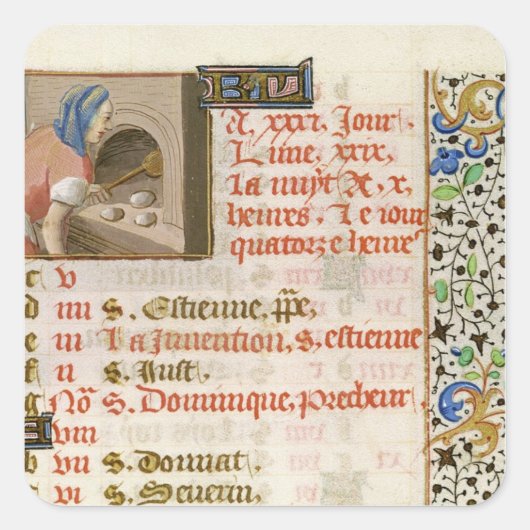 A, xxxi, Jour
Lune, xxix,
La nuyt A, x,
heures, Le iour
quatorze heure
c v
d iiii S. Estienne, ppe,
e iii La Invention, S. estienne
f ii S. Just,
g Nõ S. Dominique, precheur
A viii
b vii S. Donnat,
vi S. Severin,